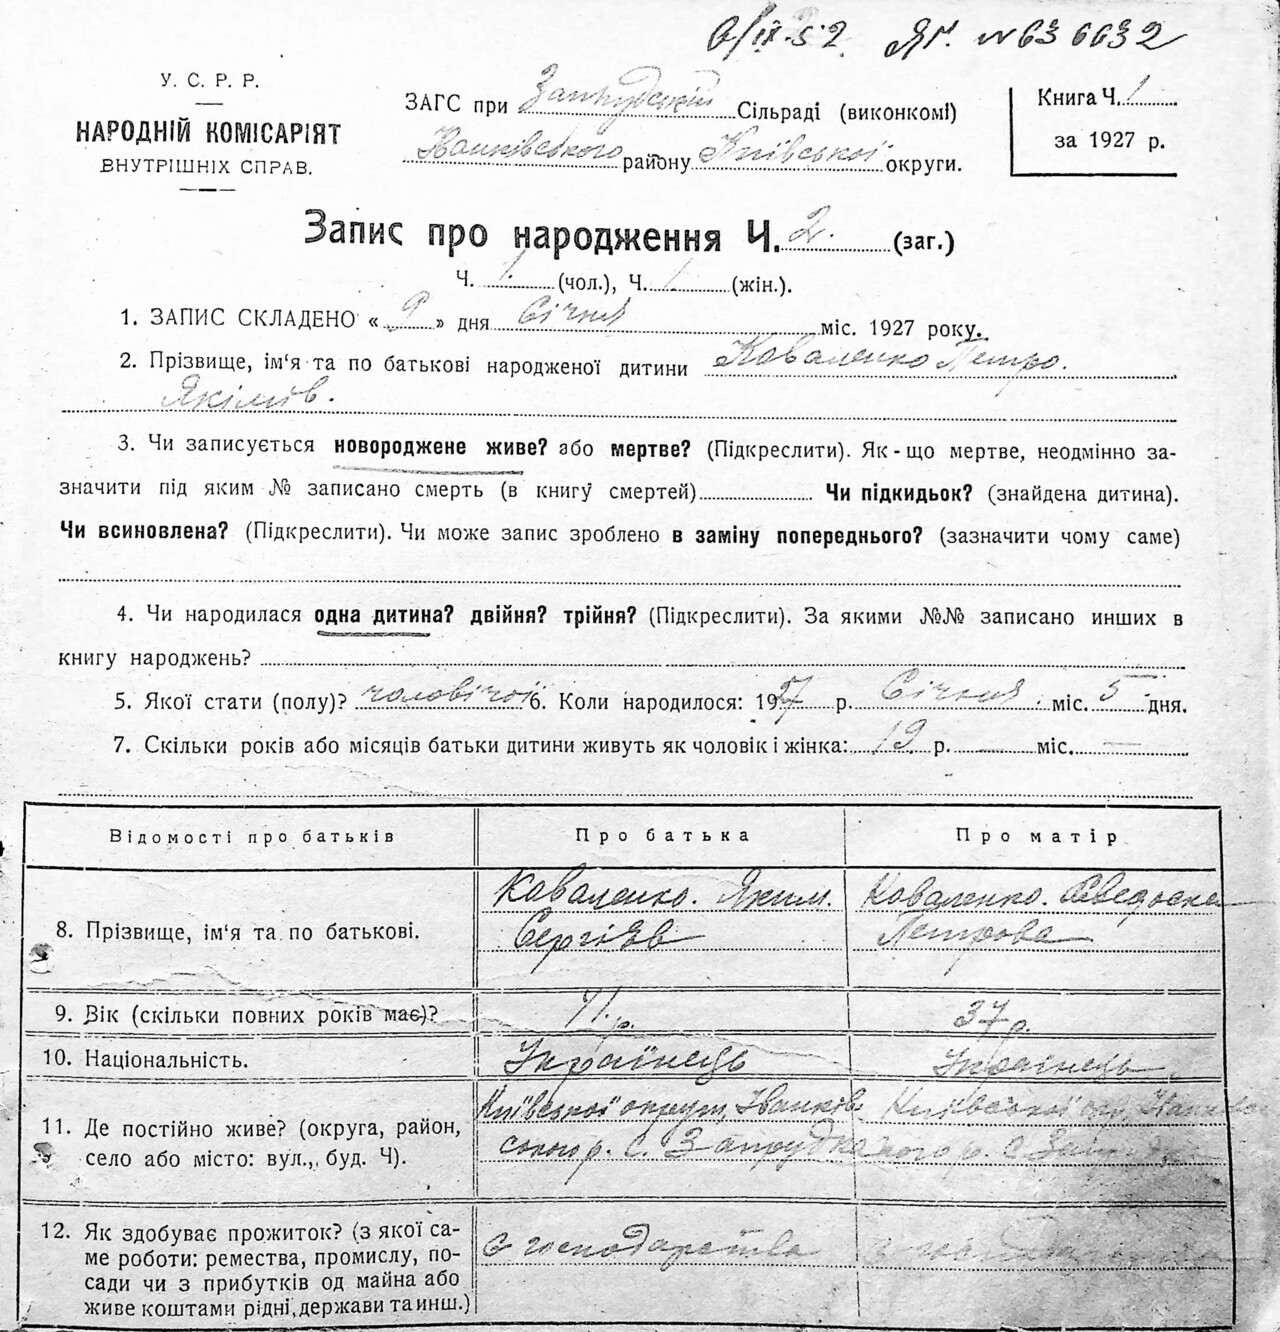 6/IX-52 ЯГ. №636632
У. С. Р. Р.
НАРОДНІЙ КОМІСАРІЯТ
ВНУТРІШНІХ СПРАВ.
ЗАГС при Запрудській Сільраді (виконкомі)
Іванківського району Київської округи.
Книга Ч. 1
за 1927 р.
Запис про народження Ч. 2. (заг.)
Ч. 1 (чол.), Ч. 1 (жін.).
1. ЗАПИС СКЛАДЕНО « 9 » дня Січня міс. 1927 року.
2. Прізвище, ім‘я та по батькові народженої дитини Коваленко Петро.
Якімів.
3. Чи записується новороджене живе? або мертве? (Підкреслити). Як-що мертве, неодмінно за-
значити під яким № записано смерть (в книгу смертей) Чи підкидьок? (знайдена дитина).
Чи всиновлена? (Підкреслити). Чи може запис зроблено в заміну попереднього? (зазначити чому саме)
4. Чи народилася одна дитина? двійня? трійня? (Підкреслити). За якими №№ записано инших в
книгу народжень?
5. Якої стати (полу)? чоловічої 6. Коли народилося: 1927 р. Січня міс. 5 дня.
7. Скільки років або місяців батьки дитини живуть як чоловік і жінка: 19 р. — міс. —
Відомості про батьків Про батька Про матір
8. Прізвище, ім‘я та по батькові. Коваленко. Яким. Коваленко.
Сергіїв Петрова
9. Вік (скільки повних років має)? 41 р. 37 р.
10. Національність. Українець Українець
11. Де постійно живе? (округа, район, Київської округи, Іванків- Київської окр, Іванків
село або місто: вул., буд. Ч). ського р. С. Запрудка ського р. С.
12. Як здобуває прожиток? (з якої са-
ме роботи: ремества, промислу, по- З господарства З господарства
сади чи з прибутків од майна або
живе коштами рідні, держави та инш.)